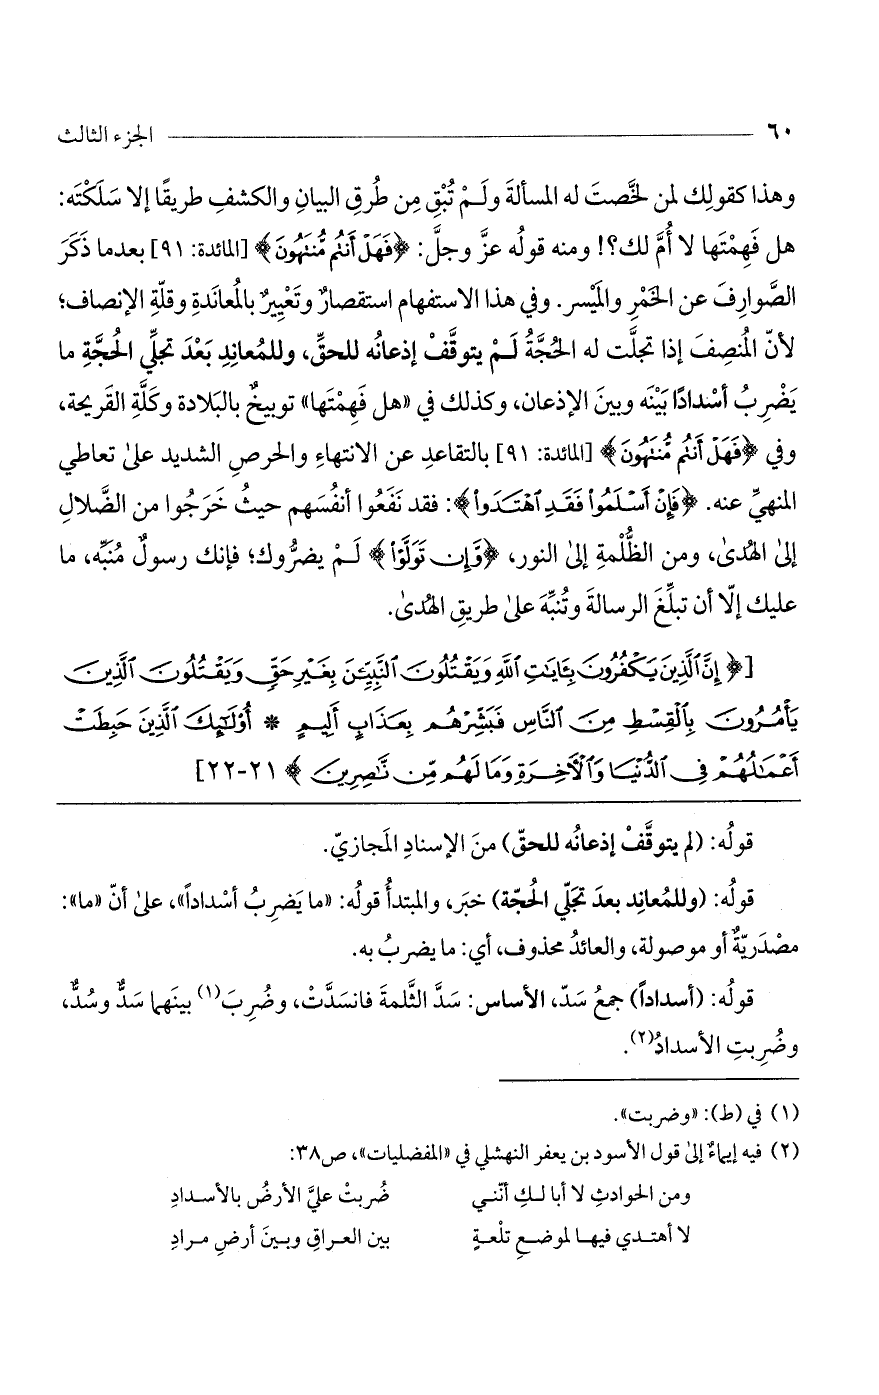 ٦٠ الجزء الثالث
وهذا كقولِك لمن لخَّصتَ له المسألةَ ولَـمْ تُبْقِ مِن طُرقِ البيانِ والكشفِ طريقًا إلا سَلَكْتَه:
هل فَهِمْتَها لا أُمَّ لك؟! ومنه قولُه عزَّ وجلَّ: ﴿فَهَلْ أَنتُم مُّنتَهُونَ﴾ [المائدة: ٩١] بعدما ذَكَرَ
الصَّوارِفَ عن الخَمْرِ والمَيْسر. وفي هذا الاستفهام استقصارٌ وتَعْيِيرٌ بالمُعانَدةِ وقلّةِ الإنصاف؛
لأنّ المُنصِفَ إذا تجلَّت له الحُجَّةُ لَـمْ يتوقَّفْ إذعانُه للحقِّ، وللمُعانِدِ بَعْدَ تجلِّي الحُجَّةِ ما
يَضْرِبُ أسْدادًا بَيْنَه وبينَ الإذعان، وكذلك في «هل فَهِمْتَها» توبيخٌ بالبَلادة وكَلَّةِ القَريحة،
وفي ﴿فَهَلْ أَنتُم مُّنتَهُونَ﴾ [المائدة: ٩١] بالتقاعدِ عن الانتهاءِ والحرصِ الشديد علىٰ تعاطي
المنهيِّ عنه. ﴿فَإِنْ أَسْلَمُوا۟ فَقَدِ ٱهْتَدَوا۟﴾: فقد نَفَعُوا أنفُسَهم حيثُ خَرَجُوا من الضَّلالِ
إلىٰ الهُدىٰ، ومن الظُّلْمةِ إلىٰ النور، ﴿وَّإِن تَوَلَّوْا۟﴾ لَـمْ يضرُّوك؛ فإنك رسولٌ مُنَبِّه، ما
عليك إلّا أن تبلِّغَ الرسالةَ وتُنبِّهَ علىٰ طريقِ الهُدىٰ.
[﴿إِنَّ ٱلَّذِينَ يَكْفُرُونَ بِـَٔايَـٰتِ ٱللَّهِ وَيَقْتُلُونَ ٱلنَّبِيِّـۧنَ بِغَيْرِ حَقٍّ وَيَقْتُلُونَ ٱلَّذِينَ
يَأْمُرُونَ بِٱلْقِسْطِ مِنَ ٱلنَّاسِ فَبَشِّرْهُم بِعَذَابٍ أَلِيمٍ * أُو۟لَـٰٓئِكَ ٱلَّذِينَ حَبِطَتْ
أَعْمَـٰلُهُمْ فِى ٱلدُّنْيَا وَٱلْـَٔاخِرَةِ وَمَا لَهُم مِّن نَّـٰصِرِينَ﴾ ٢١-٢٢]
قولُه: (لم يتوقَّفْ إذعانُه للحقّ) منَ الإسنادِ المَجازيّ.
قولُه: (وللمُعانِد بعدَ تجلّي الحُجّة) خبَر، والمبتدأُ قولُه: «ما يَضرِبُ أسْداداً»، علىٰ أنّ «ما»:
مصْدَريّةٌ أو موصولة، والعائدُ محذوف، أي: ما يضربُ به.
قولُه: (أسداداً) جمعُ سَدّ، الأساس: سَدَّ الثَّلمةَ فانسَدَّتْ، وضُرِبَ(١) بينَهما سَدٌّ وسُدٌّ،
وضُرِبتِ الأسدادُ(٢).
(١) في (ط): «وضربت».
(٢) فيه إيماءٌ إلىٰ قول الأسود بن يعفر النهشلي في «المفضليات»، ص٣٨:
ومن الحوادثِ لا أبا لـكِ أنّنـي ضُربتْ عليَّ الأرضُ بالأسـدادِ
لا أهتـدي فيهـا لموضـعِ تلْعـةٍ بين العـراقِ وبـينَ أرضِ مـرادِ